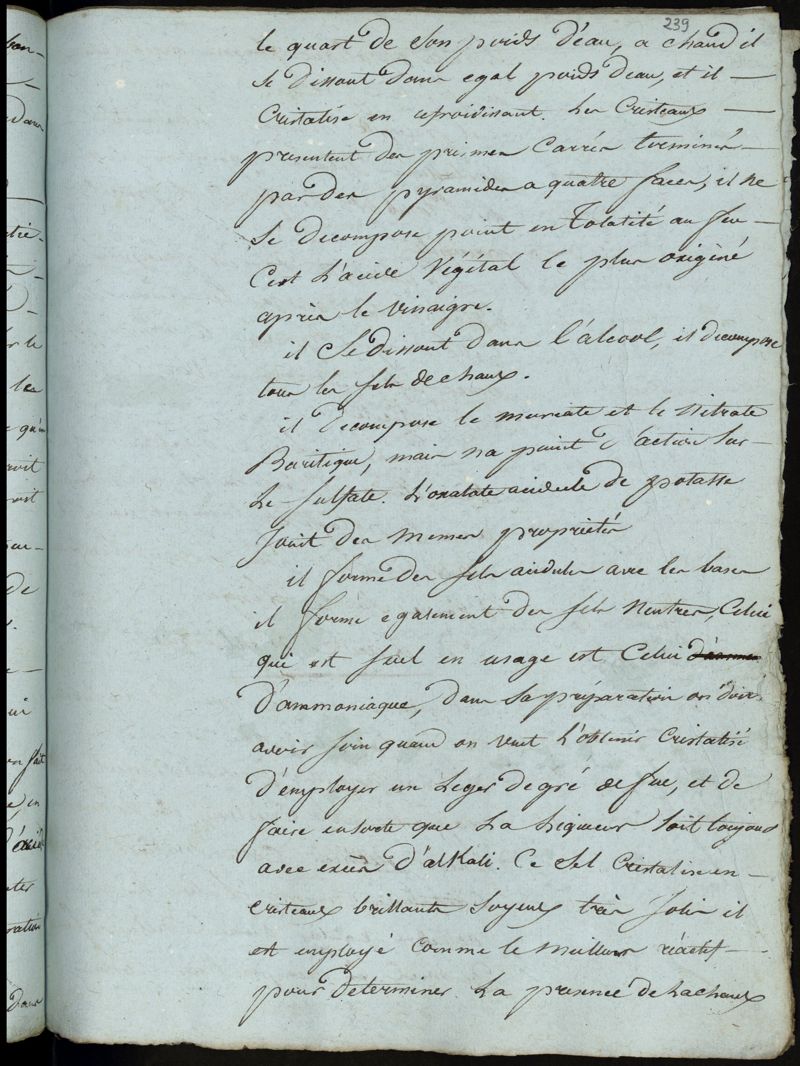 239
le quart de son poids d'eau, a chaud il
se dissout dans egal poids d'eau, et il
Cristalise en refroidissant. les Cristeaux
presentent des prismes Carrés terminés
par des pyramides a quatre faces, il ne
se decompose point en totalité au feu
C'est L'acide Végétal le plus oxigéné
après le vinaigre.
il se dissout dans l'alcool, il decompose
tous les sels de chaux.
il decompose le muriate et le nitrate
Baritique, mais n'a point d'action sur
le sulfate. L'oxalate acidule de potasse
Jouit des memes propriétés
il forme des sels acidules avec les bases
il forme egalement des sels Neutres, Celui
qui est seul en usage est Celui
D'ammoniaque, dans sa préparation on doit
avoir soin quand on veut l'obtenir Cristalisé
D'employer un leger degré de feu, et de
faire ensorte que La liqueur soit toujours
avec excès D'alKali. Ce sel Cristalise en
cristeaux brillants soyeux très Jolis il
est employé comme le meilleur réactif
pour determiner La presence de La chaux